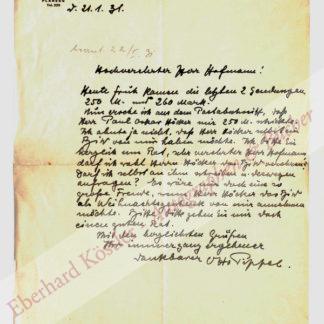 PLANEGG
d. 21.1.31.
Hochverehrter Herr Hofmann!
Heute früh kamen die letzten 2 Sendungen
250 M. und 260 Mark.
Nun ersehe ich aus dem Postabschnitt, daß
Herr Paul Oskar Höcker mir 250 M. schickte.
Ich ahnte ja nicht, daß Herr Höcker
von mir haben möchte. Ich bitte Sie
herzlich um Rat, sehr verehrter Herr Hofmann,
darf ich wohl Herrn Höcker das Bild
Darf ich selbst an ihn schreiben u. deswegen
anfragen? Es wäre mir doch eine so
große Freude, wenn Herr Höcker das Bild
als Weihnachtsgeschenk von mir annehmen
möchte. Bitte, bitte geben Sie mir doch
einen guten Rat.
Mit den herzlichsten Grüßen
Ihr immer ganz ergebener
dankbarer Otto Pippel.
Eberhard Köstler